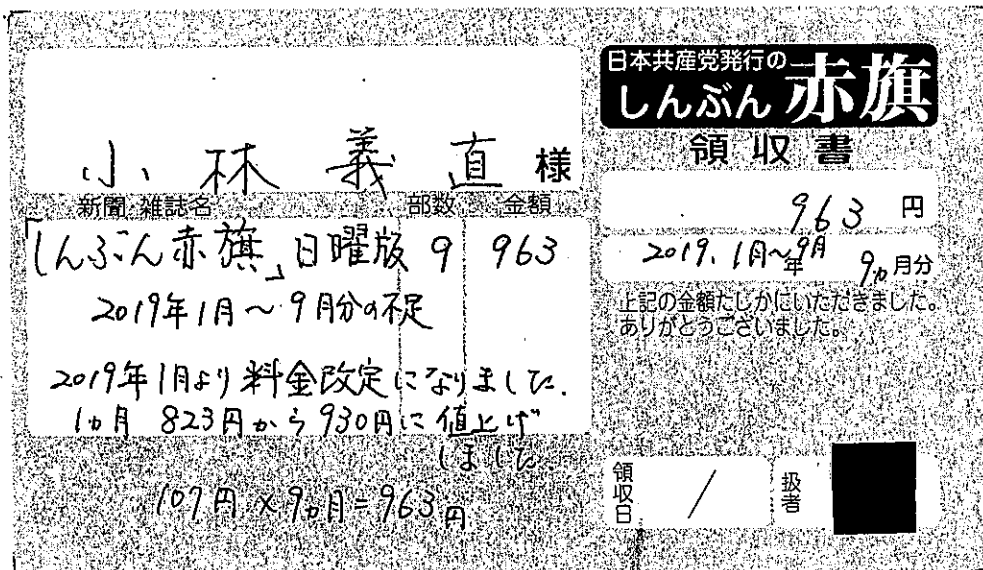 小林義直様
新聞雑誌名 部数 金額
「しんぶん赤旗」日曜版 9 963
2019年1月〜9月分の不足
2019年1月より料金改定になりました.
1ヵ月 823円から930円に値上げ
しました
107円×9ヵ月=963円
日本共産党発行の
しんぶん赤旗
領収書
963円
2019.1月〜9月
年 9ヵ月分
上記の金額たしかにいただきました。
ありがとうございました。
領収日 /
扱者